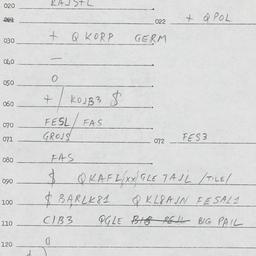 020 KAJS+L
021 022 + QPOL
030 + QKORP GERM
040 —
050 O
060 +/KOJB3 $
070 FESL/FAS
071 GROJS 072 FES3
080 FAS
090 $ QKAFL/xx/GLE TAJL /TILE/
100 $ BARLK81 QKL8AJN FESAL1
110 CIB3 QGLE BIG PEIL BIG PAIL
120 O